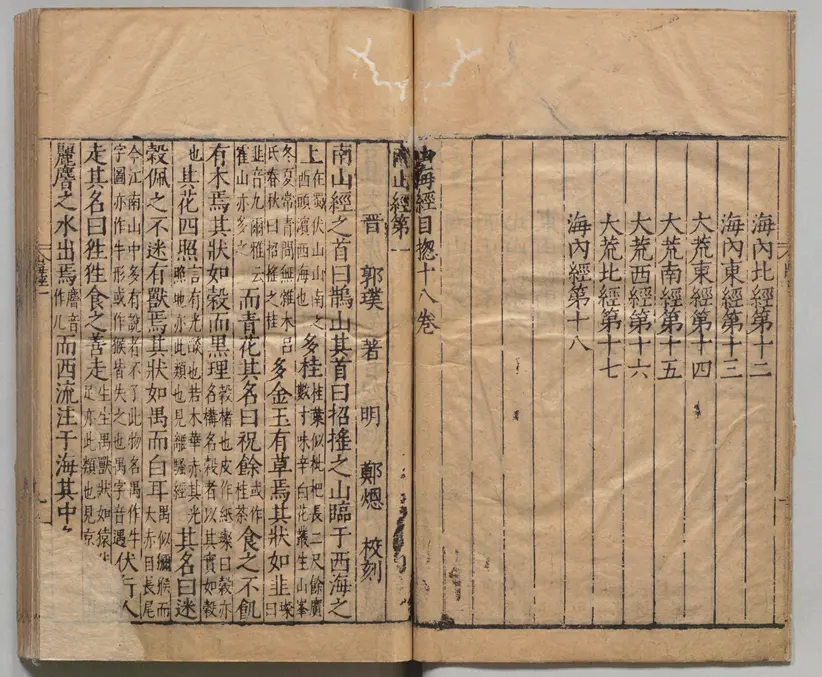 海內北經第十二
海內東經第十三
大荒東經第十四
大荒南經第十五
大荒西經第十六
大荒北經第十七
海內經第十八
山海經目揔十八卷
南山經第一
晋 郭璞 著 明 鄭煾 校刻
南山經之首曰鵲山其首曰招搖之山臨于西海之
上在蜀伏山山南之西頭濱西海也多桂桂葉似枇杷長二尺餘廣數寸味辛白花叢生山峯
冬夏常青間無雜木呂氏春秋曰招搖之桂多金玉有草焉其狀如韭璨曰
韭音九爾雅云霍山亦多之而青花其名曰祝餘或作桂荼食之不飢
有木焉其狀如榖而黑理榖楮也皮作紙璨曰榖亦名構名榖者以其實如榖
也其花四照言有光燄也若木華赤其光照地亦此類也見離騷經其名曰迷
榖佩之不迷有獸焉其狀如禺而白耳禺似獼猴而大赤目長尾
今江南山中多有說者不了此物名禺作牛字圖亦作牛形或作猴皆失之也禺字音遇伏行人
走其名曰狌狌食之善走生生禺獸狀如猿足亦此類也見京
麗𪊨之水出焉𪊨音作几而西流注于海其中